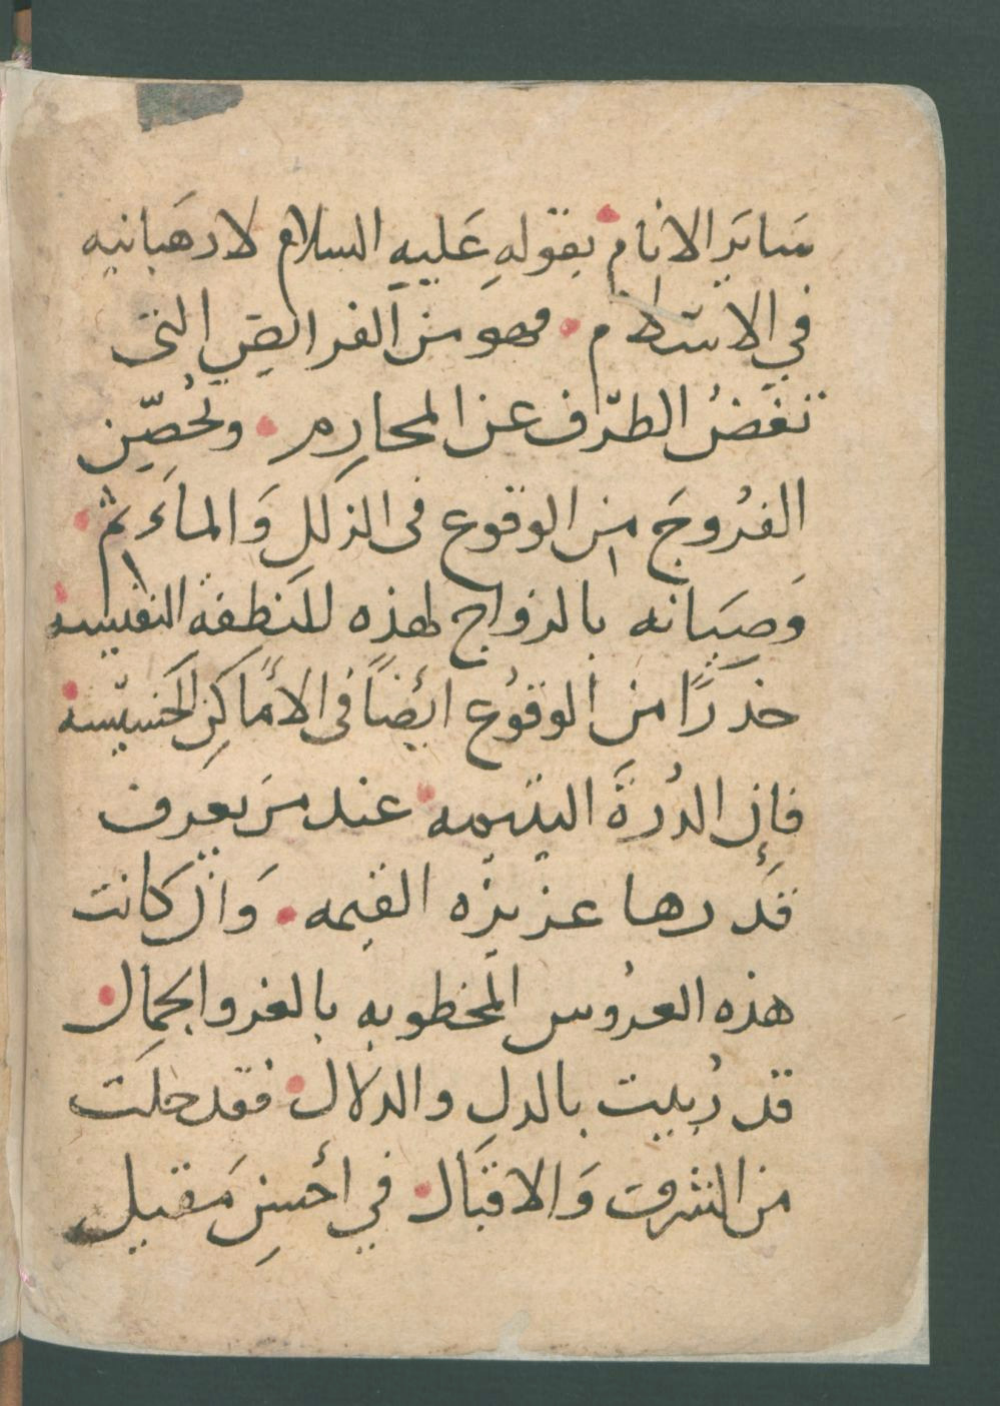 سَايَر الانام بقولهِ عَليهِ السلام لا رهَبانيه
في الاسلام فهو من الفرايض التى
تغضُ الطرّف عن المحارِم وتُحصِّن
الفرُوجَ من الوقوع فى الزلل وَالماَءثم
وَصيَانه بالزواج لهذه للنطفة النفيسه
حذرًا من الوقوُع ايضاً فى الأماكِن الخسيسه
فاِن الدُرةَ اليتيمه عند منَ يعرف
قَدرها عزيزه القيمه وَان كانت
هذه العرُوس المخطوبه بالعز والجمال
قد رُبيت بالدلِ والدلال فقد حلَت
من الشرف وَالاقبَال في أحسنِ مَقيل